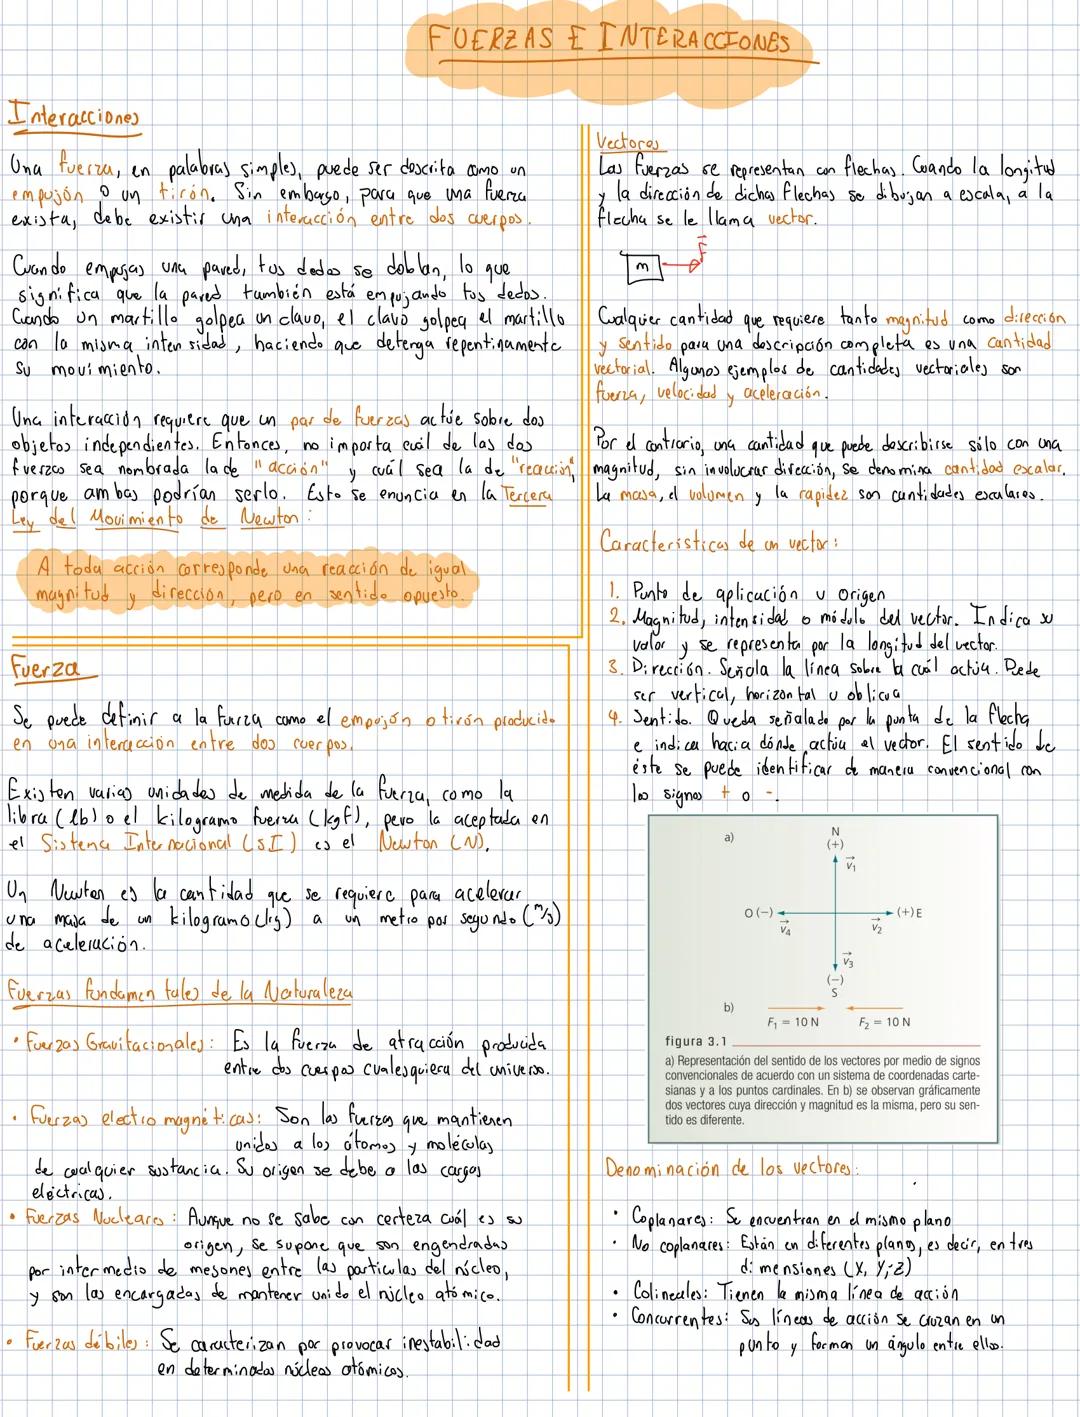 FUERZAS E INTERACCIONES
Interacciones
Una fuerza, en palabras simples, puede ser descrita como un
empujón o un tirón. Sin embargo, para que una fuerza
exista, debe existir una interacción entre dos cuerpos.
Cuando empujas una pared, tus dedos se doblan, lo que
significa que la pared también está empujando tus dedos.
Cuando un martillo golpea un clavo, el clavo golpea el martillo
con la misma intensidad, haciendo que detenga repentinamente
su movimiento.
Una interacción requiere que un par de fuerzas actúe sobre dos
objetos independientes. Entonces, no importa cuál de las dos
fuerzas sea nombrada la de "acción" y cuál sea la de "reacción",
porque ambas podrían serlo. Esto se enuncia en la Tercera
Ley del Movimiento de Newton:
A toda acción corresponde una reacción de igual
magnitud y dirección, pero en sentido opuesto.
Fuerza
Se puede definir a la fuerza como el empujón o tirón producido
en una interacción entre dos cuerpos.
Existen varias unidades de medida de la fuerza, como la
libra (lb) o el kilogramo fuerza (kgf), pero la aceptada en
el Sistema Internacional (SI) es el Newton (N).
Un Newton es la cantidad que se requiere para acelerar
una masa de un kilogramo (kg) a un metro por segundo (m/s)
de aceleración.
Fuerzas fundamentales de la Naturaleza
• Fuerzas Gravitacionales: Es la fuerza de atracción producida
entre dos cuerpos cualesquiera del universo.
• Fuerzas electromagnéticas: Son las fuerzas que mantienen
unidos a los átomos y moléculas
de cualquier sustancia. Su origen se debe a las cargas
eléctricas.
• Fuerzas Nucleares: Aunque no se sabe con certeza cuál es su
origen, se supone que son engendradas
por intermedio de mesones entre las partículas del núcleo,
y son las encargadas de mantener unido el núcleo atómico.
• Fuerzas débiles: Se caracterizan por provocar inestabilidad
en determinados núcleos atómicos.
Vectores
Las fuerzas se representan con flechas. Cuando la longitud
y la dirección de dichas flechas se dibujan a escala, a la
flecha se le llama vector.
m F
Cualquier cantidad que requiere tanto magnitud como dirección
y sentido para una descripción completa es una cantidad
vectorial. Algunos ejemplos de cantidades vectoriales son
fuerza, velocidad y aceleración.
Por el contrario, una cantidad que puede describirse sólo con una
magnitud, sin involucrar dirección, se denomina cantidad escalar.
La masa, el volumen y la rapidez son cantidades escalares.
Características de un vector:
1. Punto de aplicación u origen
2. Magnitud, intensidad o módulo del vector. Indica su
valor y se representa por la longitud del vector.
3. Dirección. Señala la línea sobre la cuál actúa. Pede
ser vertical, horizontal u oblicua
4. Sentido. Queda señalado por la punta de la flecha
e indica hacia dónde actúa el vector. El sentido de
éste se puede identificar de manera convencional con
los signos + o -.
a)
N
(+)
v1
O (−) (+) E
v4 v2
v3
(−)
S
b)
F1 = 10 N F2 = 10 N
figura 3.1
a) Representación del sentido de los vectores por medio de signos
convencionales de acuerdo con un sistema de coordenadas carte-
sianas y a los puntos cardinales. En b) se observan gráficamente
dos vectores cuya dirección y magnitud es la misma, pero su sen-
tido es diferente.
Denominación de los vectores:
• Coplanares: Se encuentran en el mismo plano
• No coplanares: Están en diferentes planos, es decir, en tres
dimensiones (X, Y, Z)
• Colineales: Tienen la misma línea de acción
• Concurrentes: Sus líneas de acción se cruzan en un
punto y forman un ángulo entre ellos.